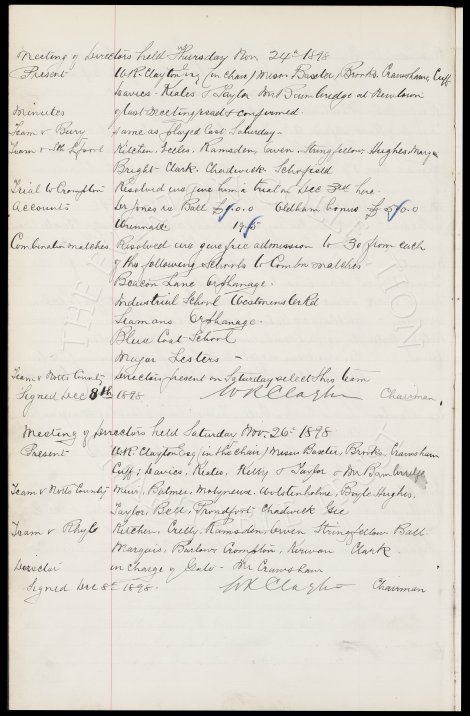 Meeting of Directors held Thursday Nov. 24th 1898
Present W.R. Clayton Esq (in chair) Messrs Baxter, Brooks, Crawshaw, Cuff
Leavies - Keates & Taylor Mr Bambridge at Newtown
Minutes of last Meeting read & confirmed.
Team v Bury Same as played last Saturday.
Team v Sth Lpool Kitchen, Eccles, Ramsden, Owen, Stringfellow, Hughes,
Bright - Clark - Chadwick - Schofield
Trial to Crompton Resolved we give him a trial on Dec 3rd here.
Accounts Dr Jones re Ball £ Oldham bonus £
Combination matches Resolved we give free admission to 30 from each
of the following schools to Combn matches -
Beacon Lane Orphanage.
Industrial School Westminster Rd
Seamans Orphanage.
Blue Coat School
Major Lesters -
Team v Notts County Directors present on Saturday select this team
Signed Dec 8th 1898 W R Clayton Chairman
Meeting of Directors held Saturday Nov. 26th 1898
Present W.R. Clayton Esq (in the chair) Messrs Baxter, Brooks, Crawshaw
Cuff, Leavies, Keates, Kelly & Taylor & Mr Bambridge
Team v Notts County Muir, Balmer, Molyneux, Wolstenholme, Boyle Hughes,
Taylor, Bell, Proudfoot, Chadwick Gee
Team v Rhyl Kitchen, Crelly, Ramsden, Owen Stringfellow Ball
Marquis, Barlow, Crompton, Kirwan Clark.
Director in charge of Gate - Mr Crawshaw
Signed Dec 8th 1898. W R Clayton Chairman